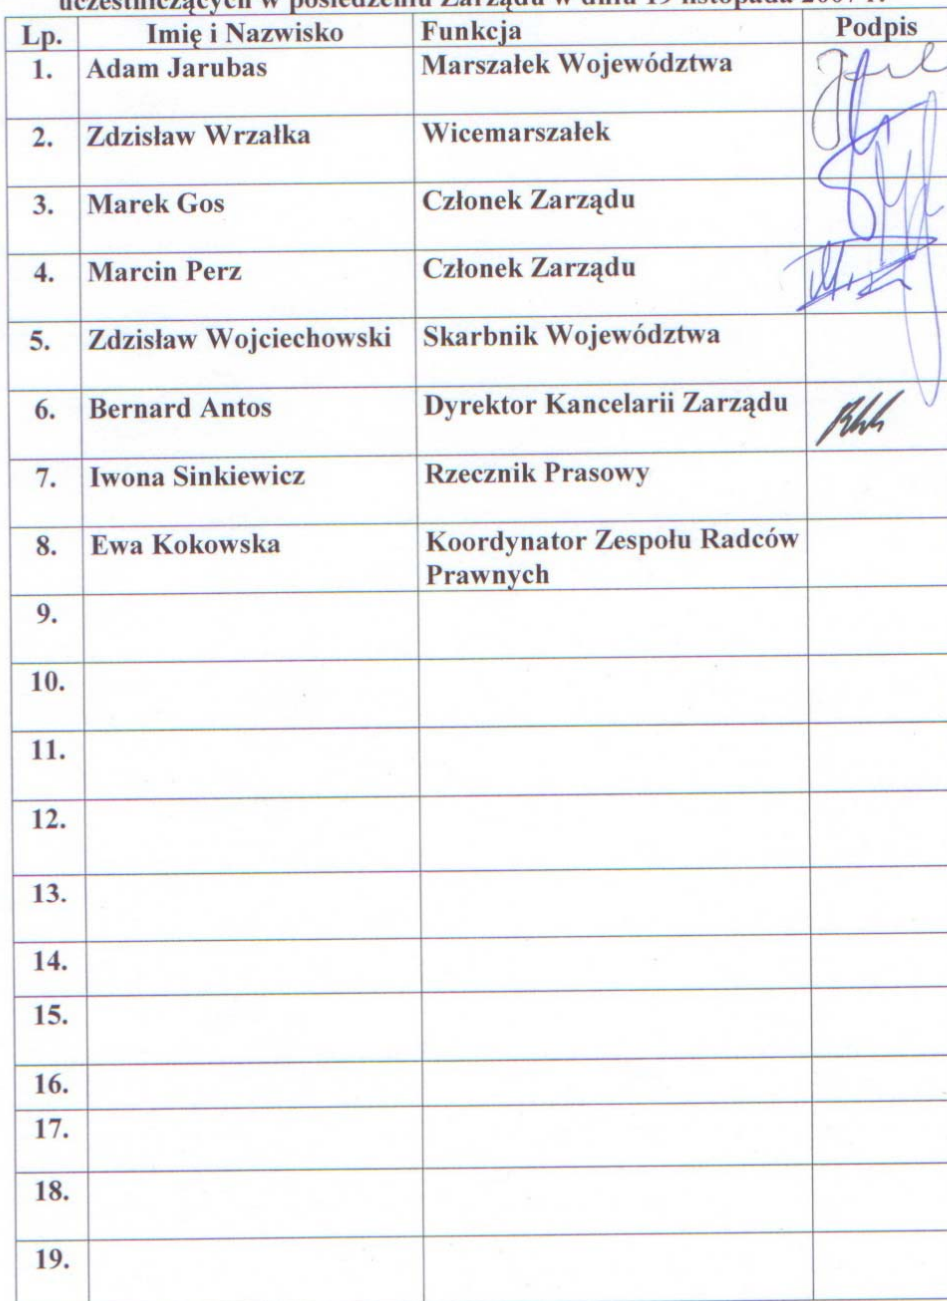 uczestniczących w posiedzeniu Zarządu w dniu 19 listopada 2007 r.
Lp. Imię i Nazwisko Funkcja Podpis
1. Adam Jarubas Marszałek Województwa
2. Zdzisław Wrzałka Wicemarszałek
3. Marek Gos Członek Zarządu
4. Marcin Perz Członek Zarządu
5. Zdzisław Wojciechowski Skarbnik Województwa
6. Bernard Antos Dyrektor Kancelarii Zarządu
7. Iwona Sinkiewicz Rzecznik Prasowy
8. Ewa Kokowska Koordynator Zespołu Radców
Prawnych
9.
10.
11.
12.
13.
14.
15.
16.
17.
18.
19.